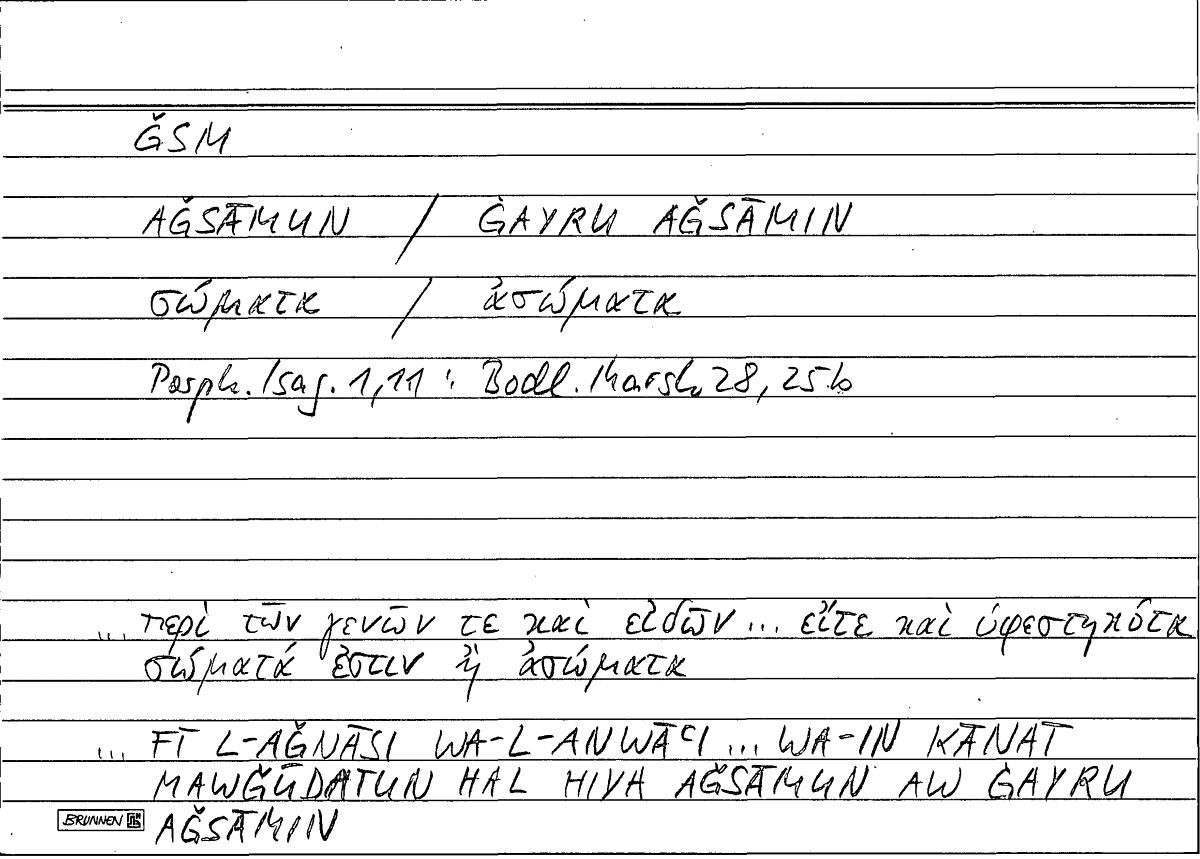 ǦSM
AǦSĀMUN / ĠAYRU AǦSĀMIN
σώματα / ἀσώματα
Porph. Isag. 1,11 : Bodl. Marsh 28, 25b
... περὶ τῶν γενῶν τε καὶ εἰδῶν ... εἴτε καὶ ὑφεστηκότα
σώματά ἐστιν ἢ ἀσώματα
... FĪ L-AǦNĀSI WA-L-ANWĀʿI ... WA-IN KĀNAT
MAWǦŪDATUN HAL HIYA AǦSĀMUN AW ĠAYRU
AǦSĀMIN
BRUNNEN